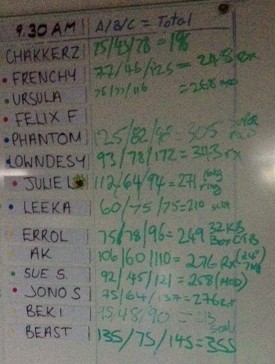 9.30 AM A/B/C = Total
CHAKKERZ 75/45/78 = 198
FRENCHY 77/46/125 = 248 Rx
URSULA
FELIX F
PHANTOM 125/82/
LOWNDESY 93/78/172 = 343 rx
JULIE L 112/64/94 = 271
LEEKA 60/75/75 = 210
ERROL 75/78/96 = 249 32KB
AK 106/60/110 = 276 Rx (24"
SUE S. 92/45/121 = 258 (MOD)
JONO S 75/64/137 = 276
BEKI
BEAST 135/75/145 = 355